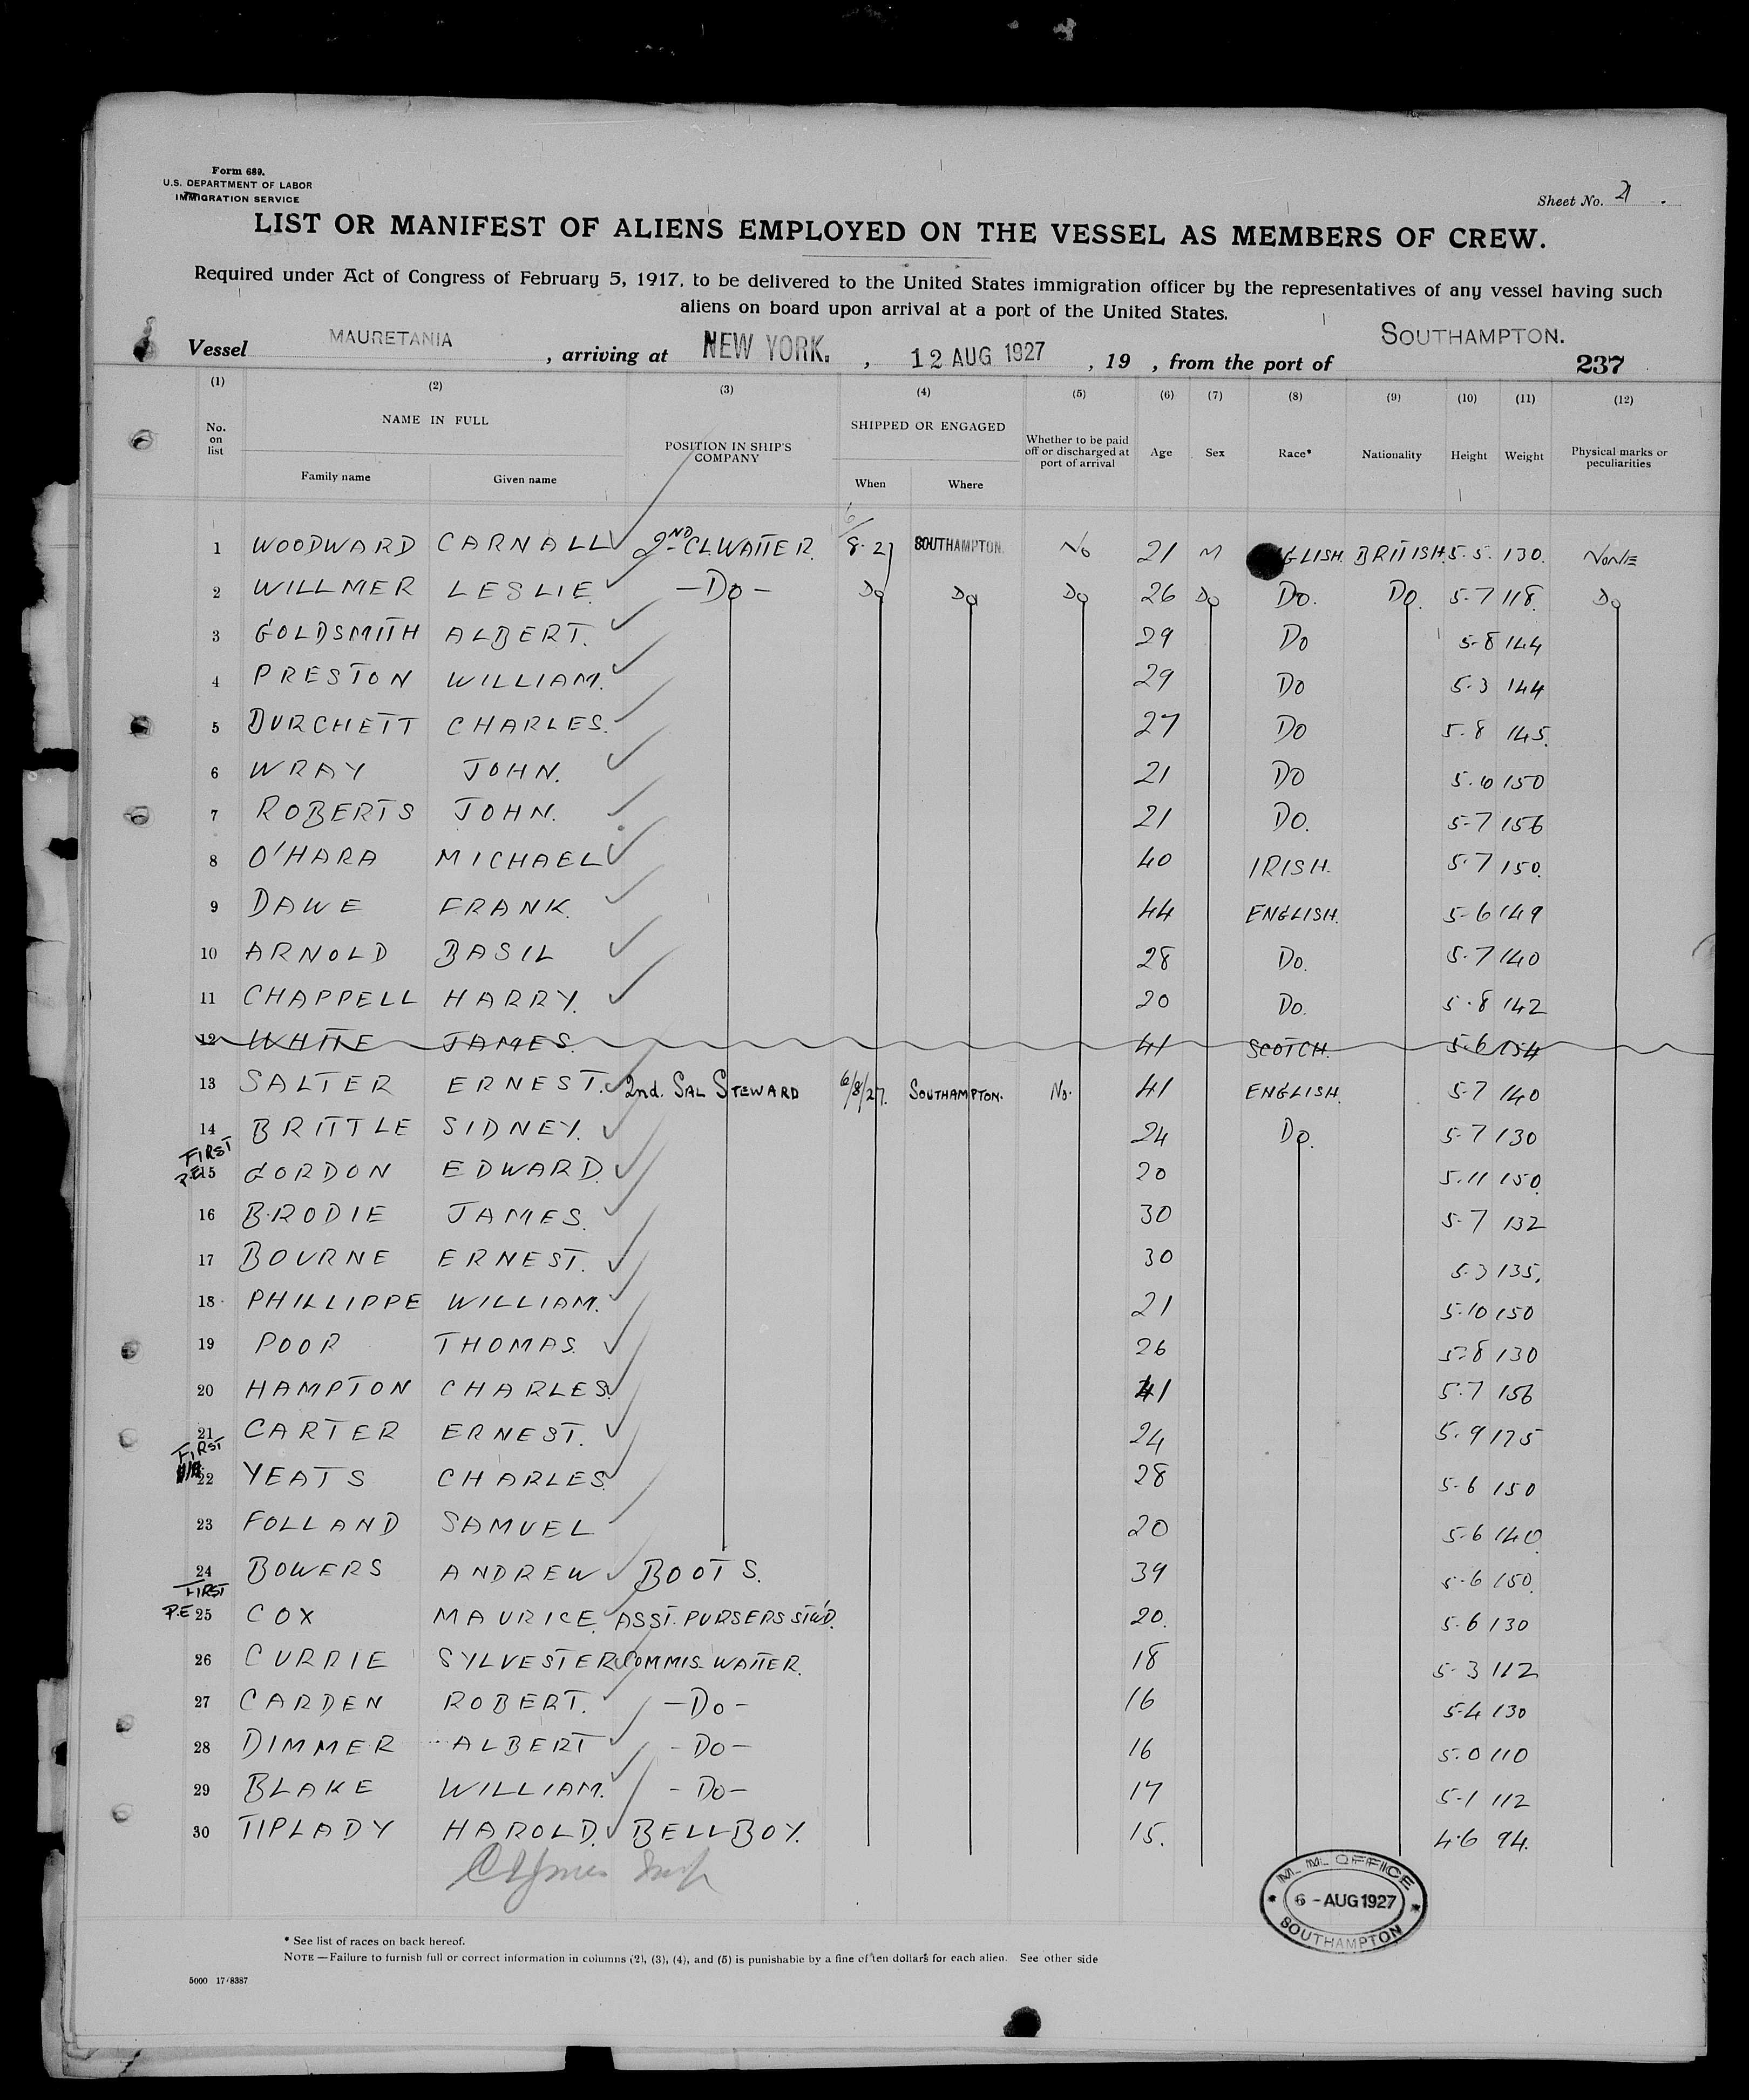 Form 689.
U.S. DEPARTMENT OF LABOR
IMMIGRATION SERVICE
Sheet No. 21.
LIST OR MANIFEST OF ALIENS EMPLOYED ON THE VESSEL AS MEMBERS OF CREW.
Required under Act of Congress of February 5, 1917, to be delivered to the United States immigration officer by the representatives of any vessel having such
aliens on board upon arrival at a port of the United States.
Vessel MAURETANIA, arriving at NEW YORK., 12 AUG 1927, 19 , from the port of SOUTHAMPTON.
237
(1) (2) (3) (4) (5) (6) (7) (8) (9) (10) (11) (12)
No. on list NAME IN FULL Family name Given name POSITION IN SHIP'S COMPANY SHIPPED OR ENGAGED When Where Whether to be paid off or discharged at port of arrival Age Sex Race* Nationality Height Weight Physical marks or peculiarities
1 WOODWARD CARNALL 2ND CL WAITER. 6/8.27 SOUTHAMPTON. No 21 M GLISH. BRITISH. 5.5. 130. NONE
2 WILLMER LESLIE. -Do- Do Do Do 26 Do Do. Do. 5-7 118. Do
3 GOLDSMITH ALBERT. 29 Do 5-8 144
4 PRESTON WILLIAM. 29 Do 5.3 144
5 BURCHETT CHARLES. 27 Do 5-8 145.
6 WRAY JOHN. 21 Do 5.10 150
7 ROBERTS JOHN. 21 Do. 5-7 156
8 O'HARA MICHAEL 40 IRISH. 5.7 150.
9 DAWE FRANK. 44 ENGLISH. 5-6 149
10 ARNOLD BASIL 28 Do. 5.7 140
11 CHAPPELL HARRY. 20 Do. 5.8 142
12 WHITE JAMES. 41 SCOTCH. 5.6 154
13 SALTER ERNEST. 2nd. SAL STEWARD 6/8/27. SOUTHAMPTON. No. 41 ENGLISH. 5.7 140
14 BRITTLE SIDNEY. 24 Do. 5-7 130
FIRST
P.E 15 GORDON EDWARD. 20 5.11 150.
16 BRODIE JAMES. 30 5.7 132
17 BOURNE ERNEST. 30 5.3 135.
18 PHILLIPPE WILLIAM. 21 5.10 150
19 POOR THOMAS. 26 5.8 130
20 HAMPTON CHARLES. 41 5.7 156
21 CARTER ERNEST. 24 5.9 175
FIRST
22 YEATS CHARLES. 28 5-6 150
23 FOLLAND SAMUEL 20 5.6 140.
24 BOWERS ANDREW BOOTS. 39 5-6 150.
FIRST
P.E 25 COX MAURICE. ASST. PURSERS STWD. 20. 5.6 130
26 CURRIE SYLVESTER COMMIS-WAITER. 18 5-3 112
27 CARDEN ROBERT. -Do- 16 5-4 130
28 DIMMER ALBERT -Do- 16 5.0 110
29 BLAKE WILLIAM. -Do- 17 5-1 112
30 TIPLADY HAROLD. BELL BOY. 15. 4.6 94.
M. M. OFFICE
6 - AUG 1927
SOUTHAMPTON
* See list of races on back hereof.
NOTE —Failure to furnish full or correct information in columns (2), (3), (4), and (5) is punishable by a fine of ten dollars for each alien. See other side
5000 17/8387